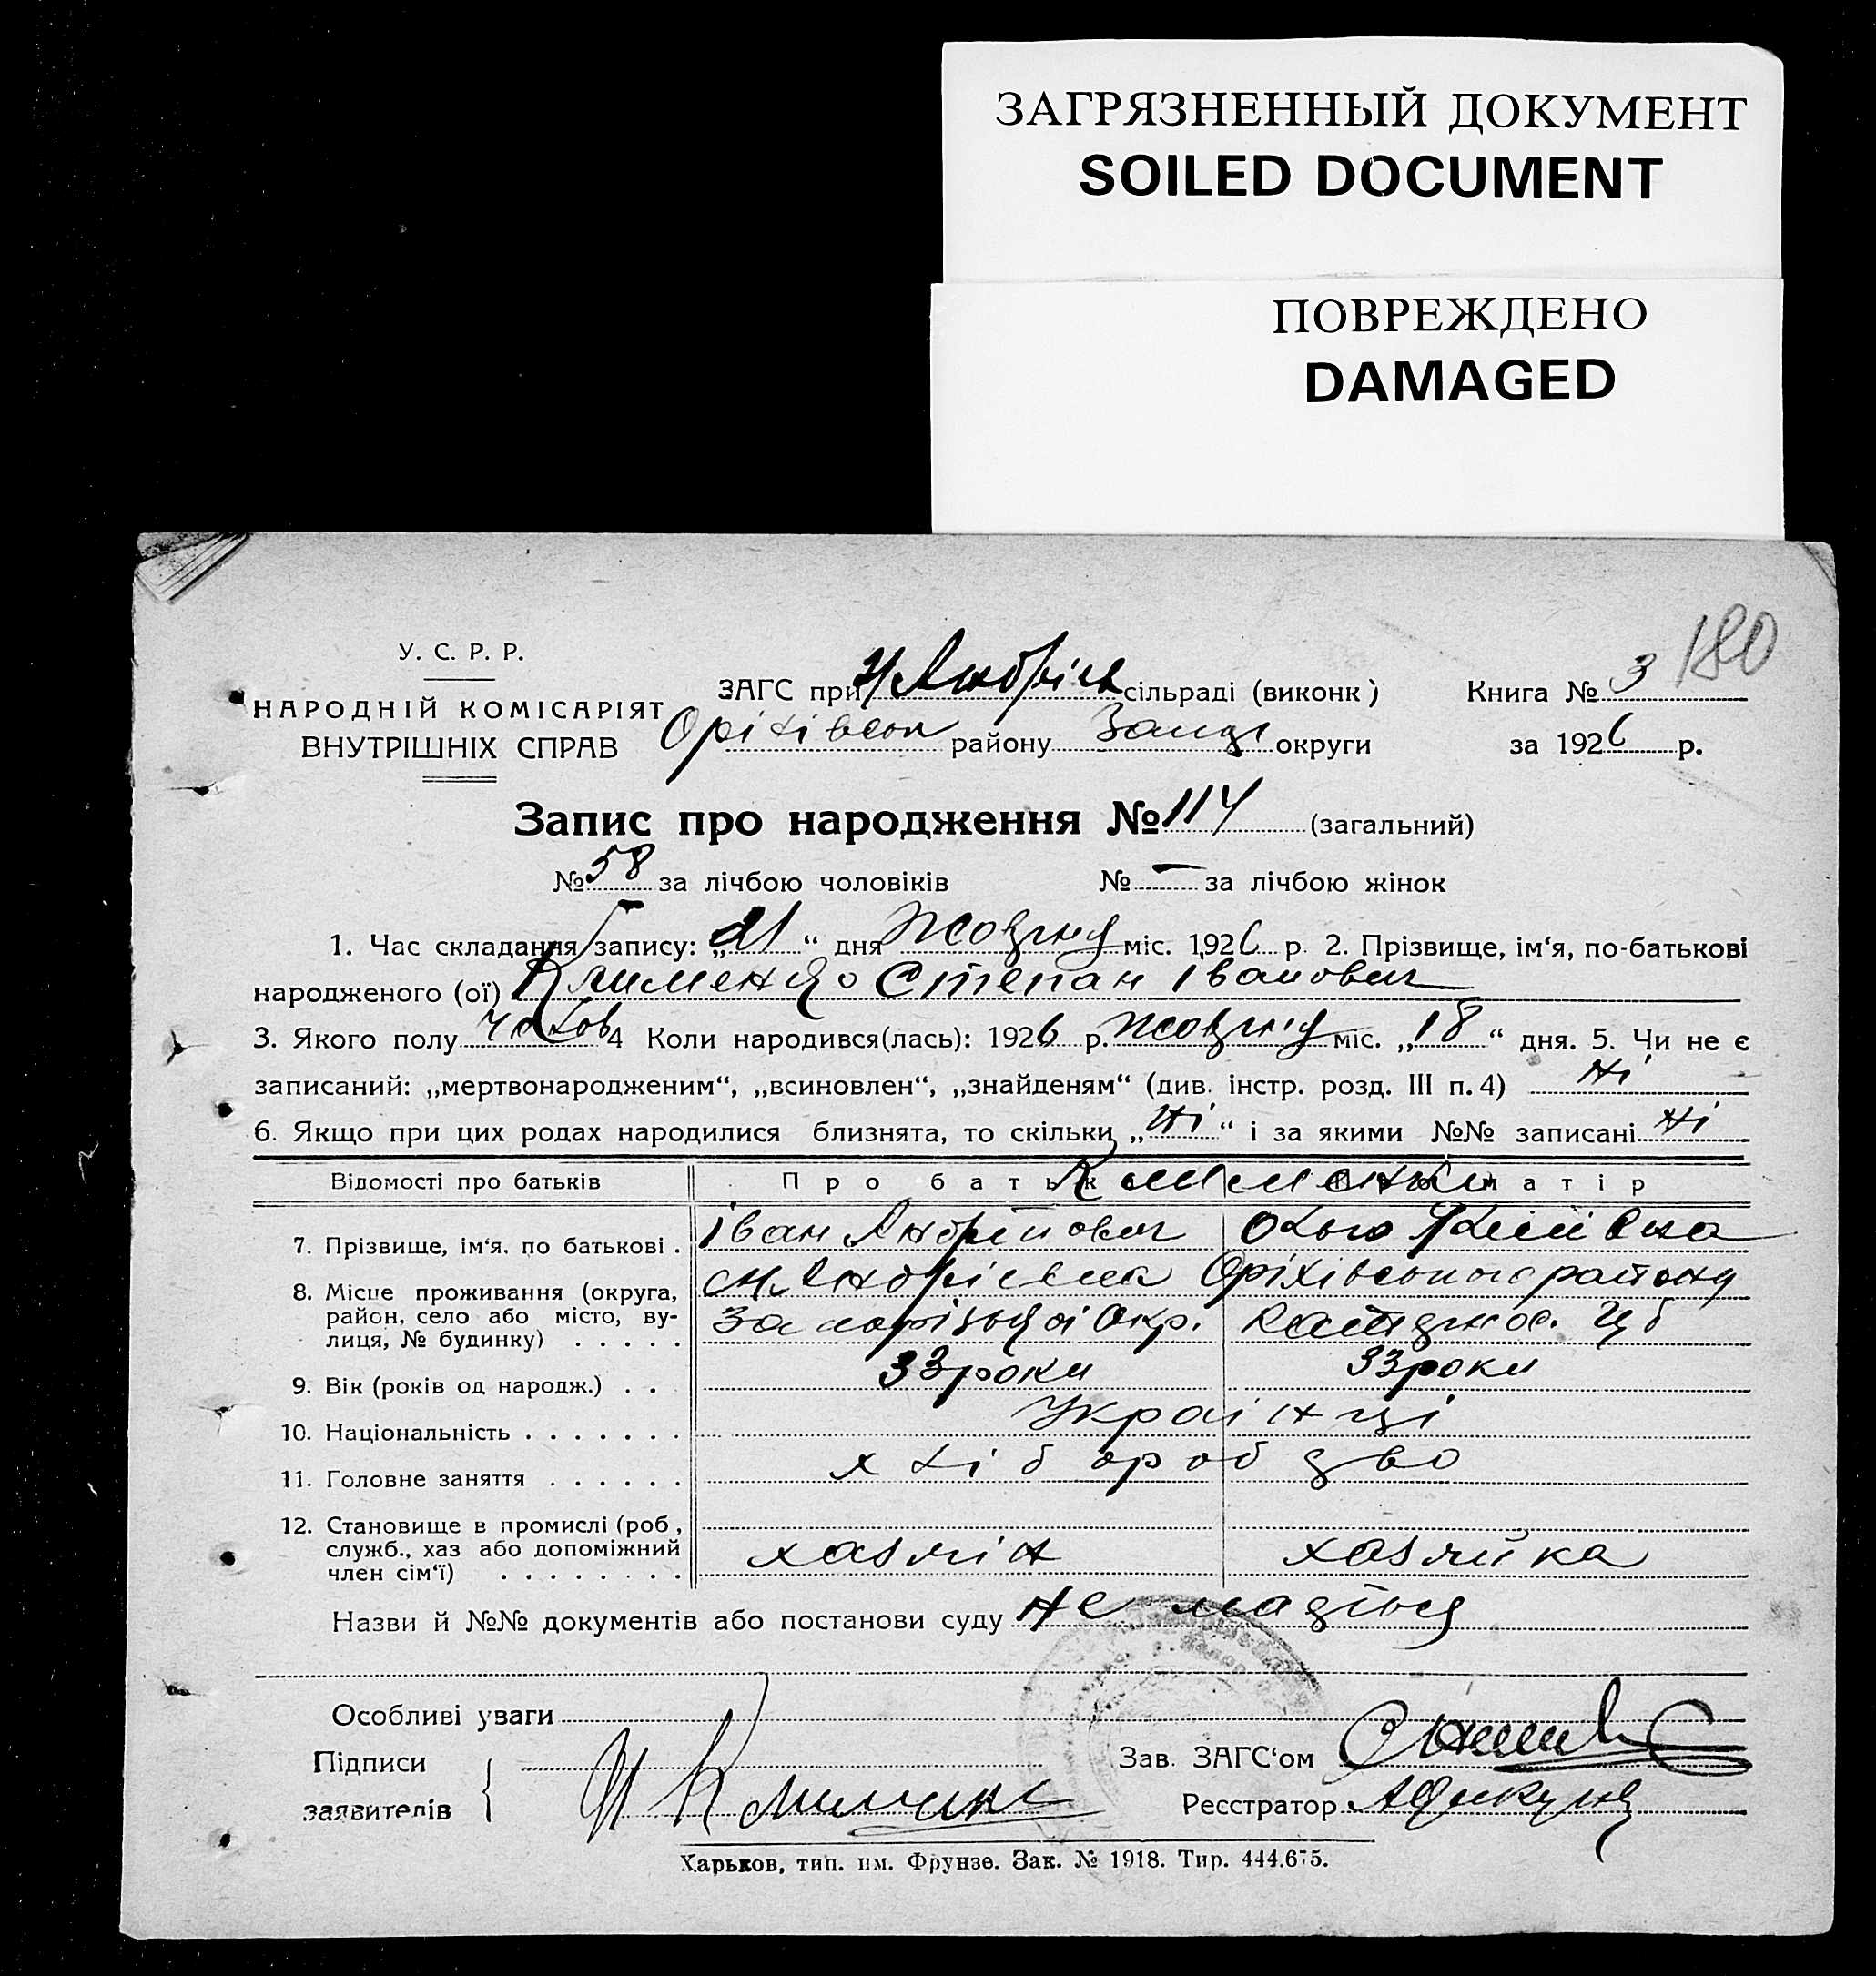 ЗАГРЯЗНЕННЫЙ ДОКУМЕНТ
SOILED DOCUMENT
ПОВРЕЖДЕНО
DAMAGED
180
У. С. Р. Р.
НАРОДНІЙ КОМІСАРІЯТ
ВНУТРІШНІХ СПРАВ
ЗАГС при сільраді (виконк)
Книга № 3
Оріхівськ району Запор округи
за 1926 р.
Запис про народження № 114 (загальний)
№ 58 за лічбою чоловіків № — за лічбою жінок
1. Час складання запису: „21“ дня Жовтня міс. 1926 р. 2. Прізвище, ім‘я, по-батькові
народженого (ої) Клименко Степан Іванович
3. Якого полу чолов 4 Коли народився(лась): 1926 р. Жовтня міс. „18“ дня. 5. Чи не є
записаний: „мертвонародженим“, „всиновлен“, „знайденям“ (див. інстр. розд. III п. 4) Ні
6. Якщо при цих родах народилися близнята, то скільки „Ні“ і за якими №№ записані Ні
Відомості про батьків
Про батька
матір
Клименки
7. Прізвище, ім‘я, по батькові . Іван Андрійович
8. Місце проживання (округа, район, село або місто, вулиця, № будинку) . . . . . Оріхівського району
Запорізької Окр.
9. Вік (років од народж.) . . 33 роки 33 роки
10. Національність . . . . . . . Українці
11. Головне заняття . . . . . . хліборобство
12. Становище в промислі (роб, служб., хаз або допоміжний член сім‘ї) . . . . . . . . хазяїн хазяйка
Назви й №№ документів або постанови суду не мається
Особливі уваги
Підписи
заявителів
И Клименко
Зав. ЗАГС‘ом
Реєстратор
Харьков, тип. им. Фрунзе. Зак. № 1918. Тир. 444.675.